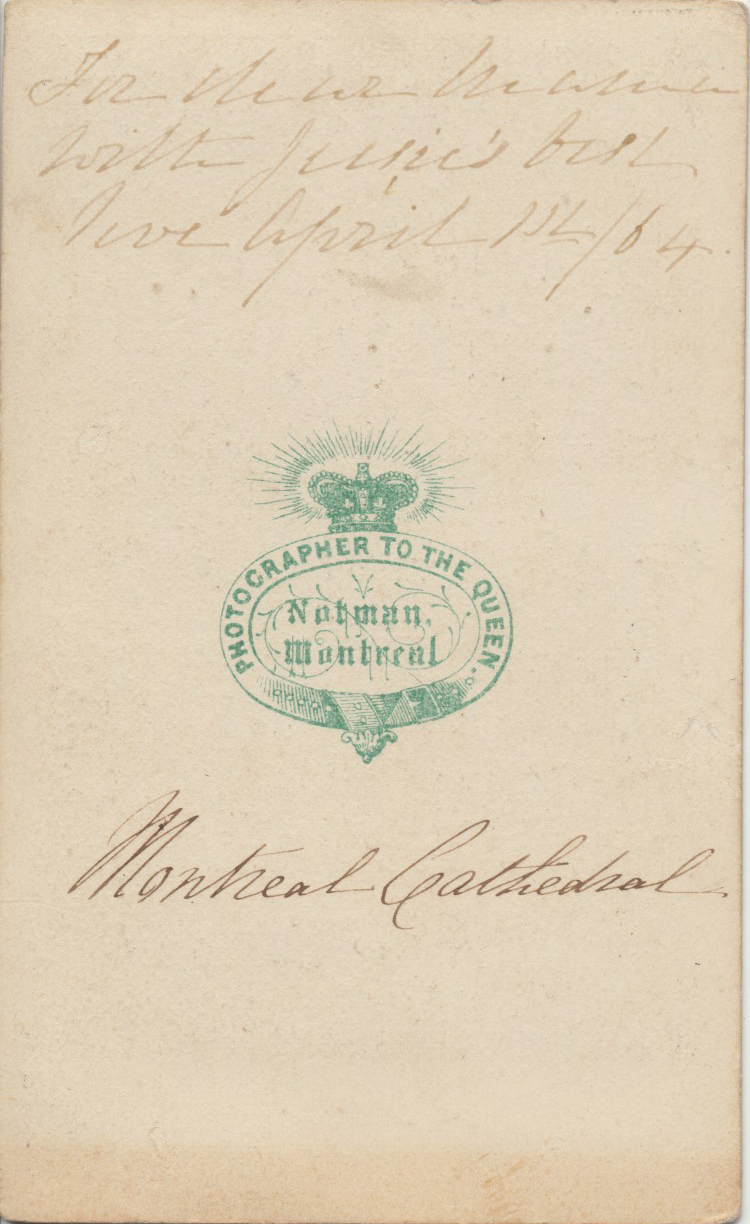 For dear Mama
with Jussie's best
love April 1st/64.
PHOTOGRAPHER TO THE QUEEN.
Notman,
Montreal
Montreal Cathedral